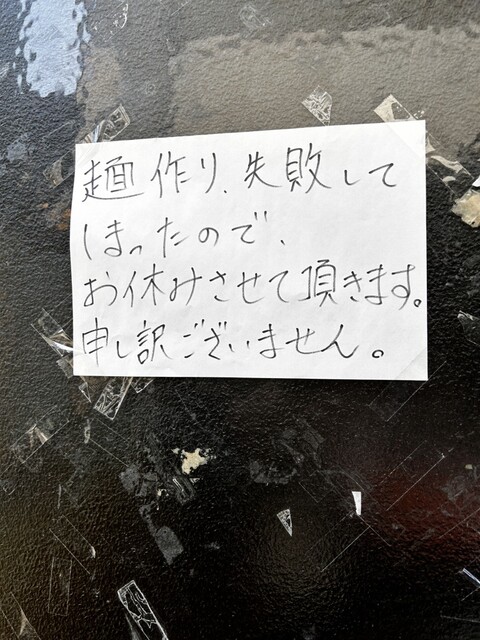 麺作り、失敗して
しまったので、
お休みさせて頂きます。
申し訳ございません。